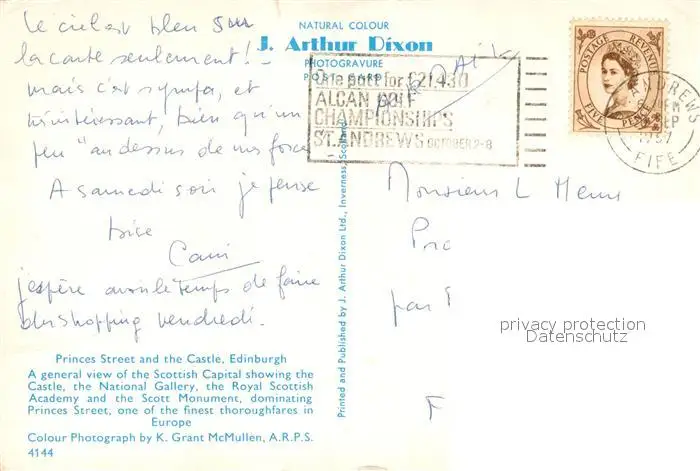 Le ciel est bleu sur
la carte seulement! -
mais c'est sympa, et
intéressant, bien qu'un
peu "au dessus de mes forces
A samedi soir je pense
bise
j'espère avoir le temps de faire
du shopping vendredi.
Princes Street and the Castle, Edinburgh
A general view of the Scottish Capital showing the
Castle, the National Gallery, the Royal Scottish
Academy and the Scott Monument, dominating
Princes Street, one of the finest thoroughfares in
Europe
Colour Photograph by K. Grant McMullen, A.R.P.S.
4144
NATURAL COLOUR
J. Arthur Dixon
PHOTOGRAVURE
POST CARD
Printed and Published by J. Arthur Dixon Ltd., Inverness, Scotland
One putt for £21,430
ALCAN GOLF
CHAMPIONSHIPS
ST. ANDREWS OCTOBER 2-8
POSTAGE REVENUE
FIVE PENCE
ANDREWS
FIFE
Monsieur L
par
privacy protection
Datenschutz